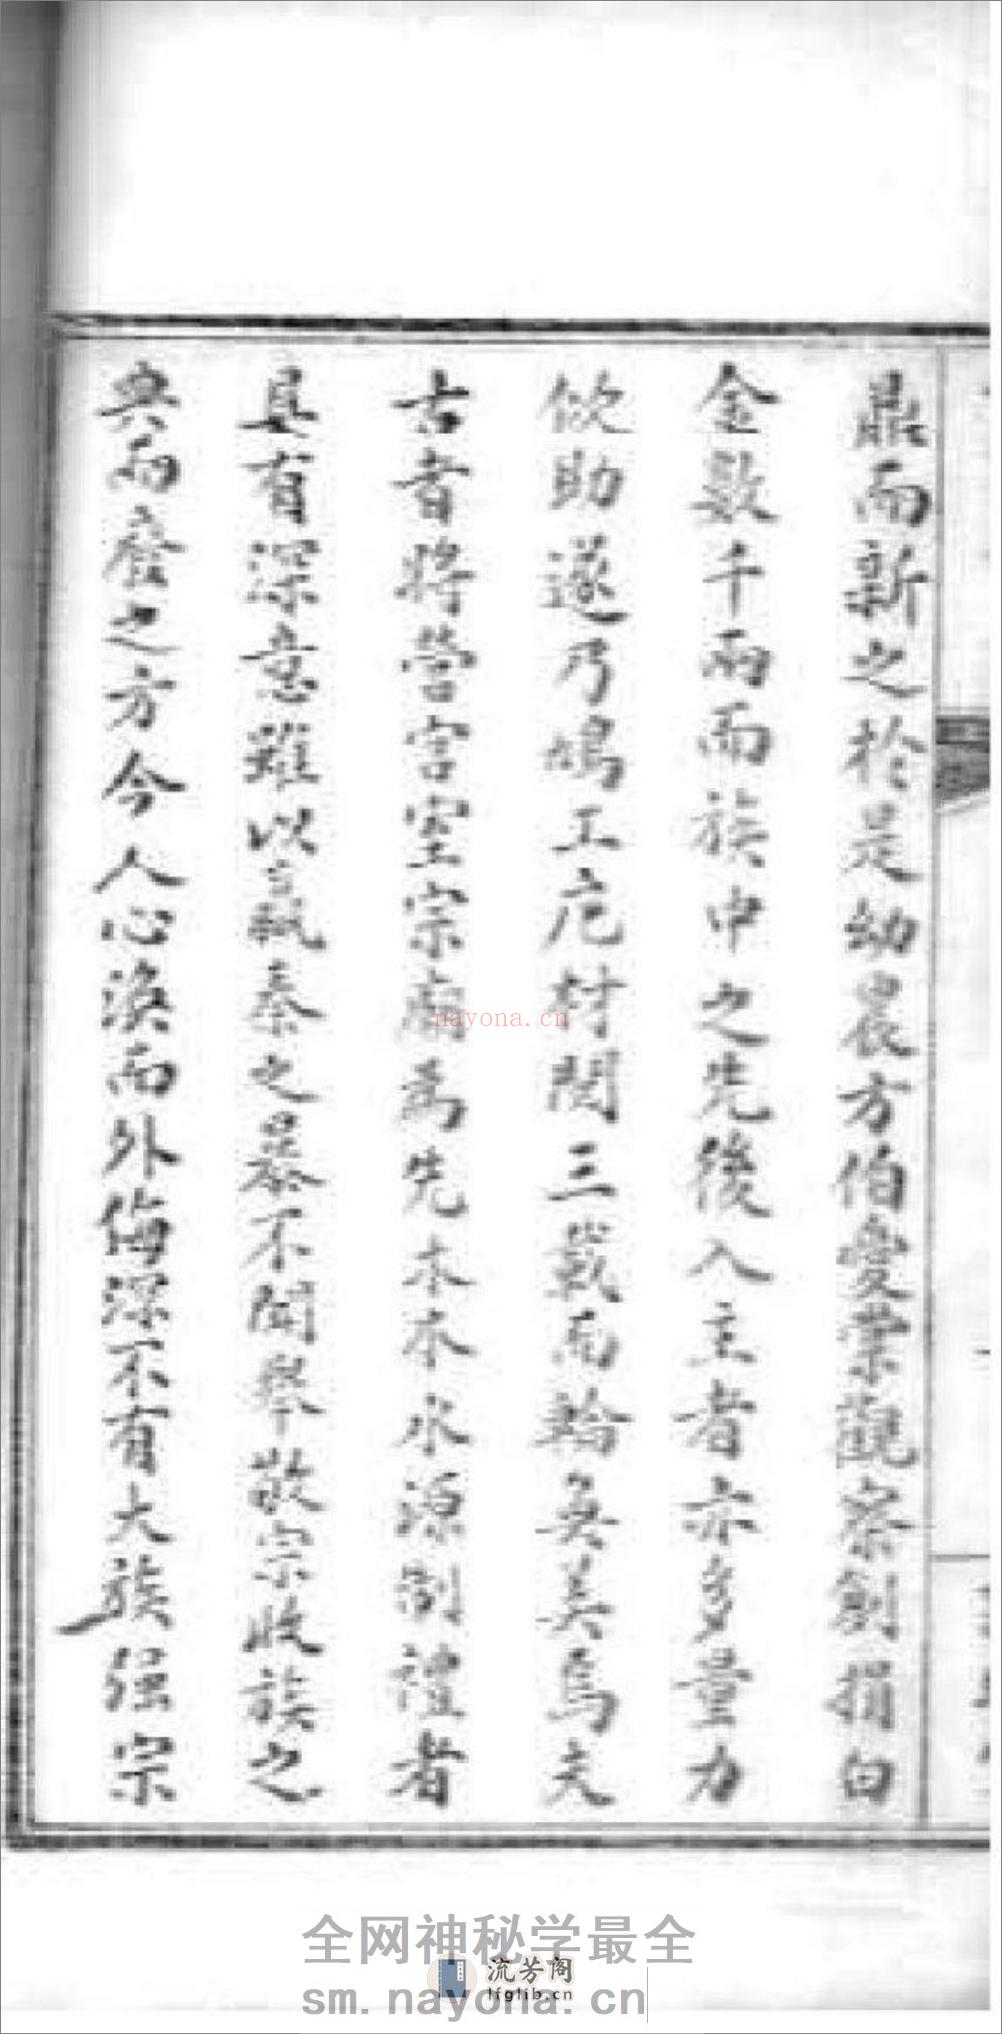 鼎而新之於是幼農方伯愛棠觀察創捐白
金數千兩而族中之先後入主者亦多量力
伙助遂乃鳩工庀材閱三載而輪奐美焉夫
古者將營宮室宗廟為先木本水源制禮者
具有深意雖以嬴秦之暴不聞舉敬宗收族之
典而廢之方今人心渙而外侮深不有大族强宗
nayona.cn
全网神秘学最全
流芳阁
lfglib.cn
sm.nayona.cn